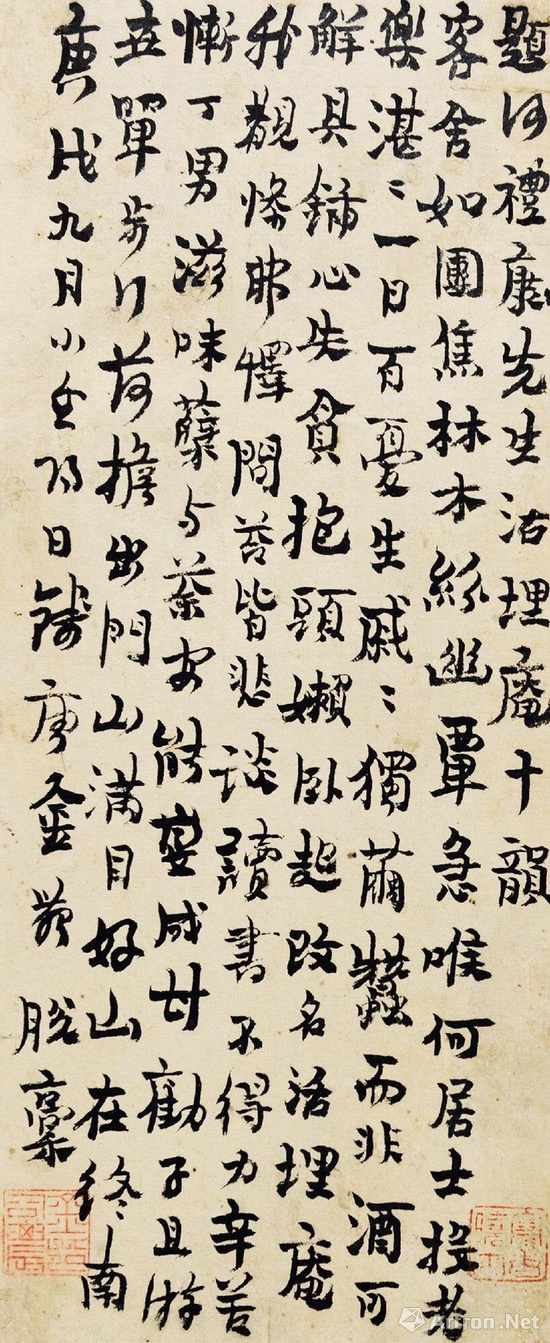 題何禮康先生活埋庵十韻
客舍如團焦林木幽覃急喉何居士投老
樂湛〻一日百憂生戚〻獨繭蠶而非酒可
解具心失貪抱頭嬾臥起改名活埋庵
我觀慘弗懌問答皆悲談讀書不得力辛苦
慚丁男滋味蘗与荼安能變成甘勸子且游
五單步行荷擔出門山滿目好山在終〻南
庚戌九月小日錢唐金農脫稾
Artron.Net